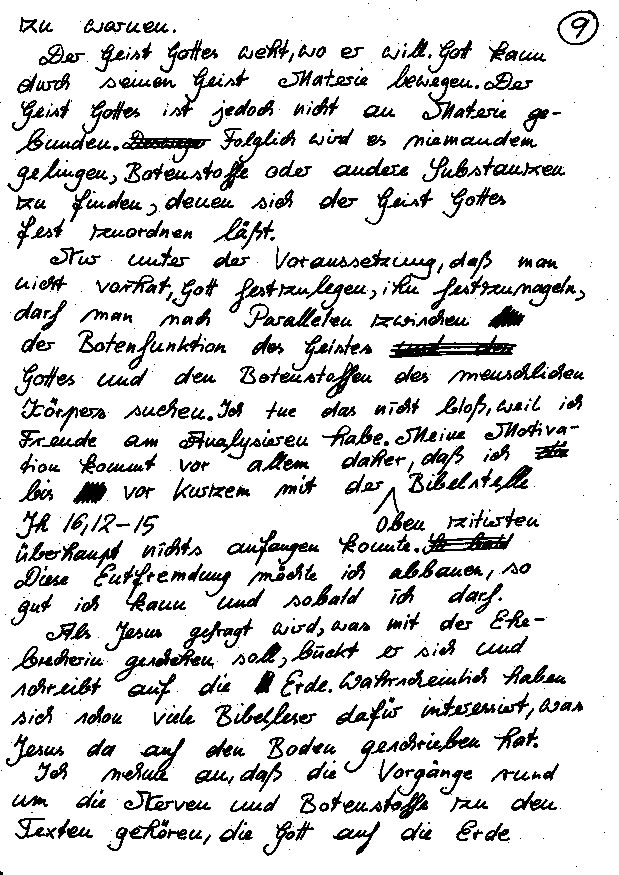 zu warnen.
9
Der Geist Gottes weht, wo er will. Gott kann
durch seinen Geist Materie bewegen. Der
Geist Gottes ist jedoch nicht an Materie ge-
bunden. Deswegen Folglich wird es niemandem
gelingen, Botenstoffe oder andere Substanzen
zu finden, denen sich der Geist Gottes
fest zuordnen läßt.
Nur unter der Voraussetzung, daß man
nicht vorhat, Gott festzulegen, ihn festzunageln,
darf man nach Parallelen zwischen
der Botenfunktion des Geistes und der
Gottes und den Botenstoffen des menschlichen
Körpers suchen. Ich tue das nicht bloß, weil ich
Freude am Analysieren habe. Meine Motiva-
tion kommt vor allem daher, daß ich
bis vor kurzem mit der Bibelstelle
Jh 16,12-15 oben zitierten
überhaupt nichts anfangen konnte.
Diese Entfremdung möchte ich abbauen, so
gut ich kann und sobald ich darf.
Als Jesus gefragt wird, was mit der Ehe-
brecherin geschehen soll, bückt er sich und
schreibt auf die Erde. Wahrscheinlich haben
sich schon viele Bibelleser dafür interessiert, was
Jesus da auf den Boden geschrieben hat.
Ich nehme an, daß die Vorgänge rund
um die Nerven und Botenstoffe zu den
Texten gehören, die Gott auf die Erde